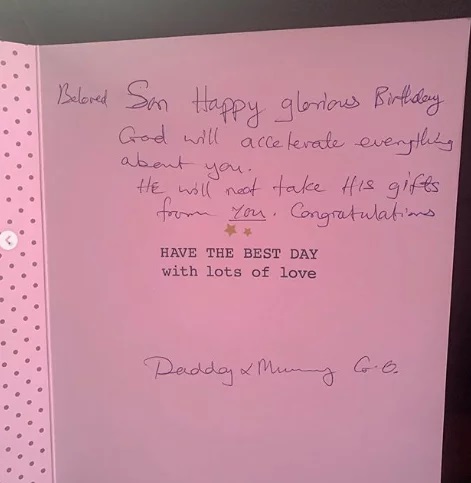 Beloved Son Happy glorious Birthday
God will accelerate everything
about you.
HE will not take His gifts
from YOU. Congratulations
HAVE THE BEST DAY
with lots of love
Daddy & Mummy G.O.